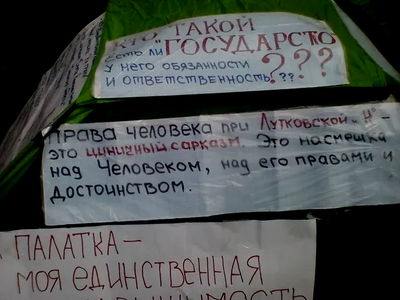 КТО ТАКОЙ
ЕСТЬ ЛИ "ГОСУДАРСТВО
У НЕГО ОБЯЗАННОСТИ
И ОТВЕТСТВЕННОСТЬ???
???
ПРАВА ЧЕЛОВЕКА ПРИ Лутковской "Н" –
ЭТО ЦИНИЧНЫЙ САРКАЗМ. ЭТО НАСМЕШКА
НАД ЧЕЛОВЕКОМ, НАД ЕГО ПРАВАМИ И
ДОСТОИНСТВОМ.
ПАЛАТКА –
МОЯ ЕДИНСТВЕННАЯ